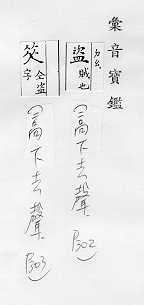 彙音寶鑑
力幺
盜 賊也
𥬇 仝盜字
高下去聲 P302
高下去聲 P303